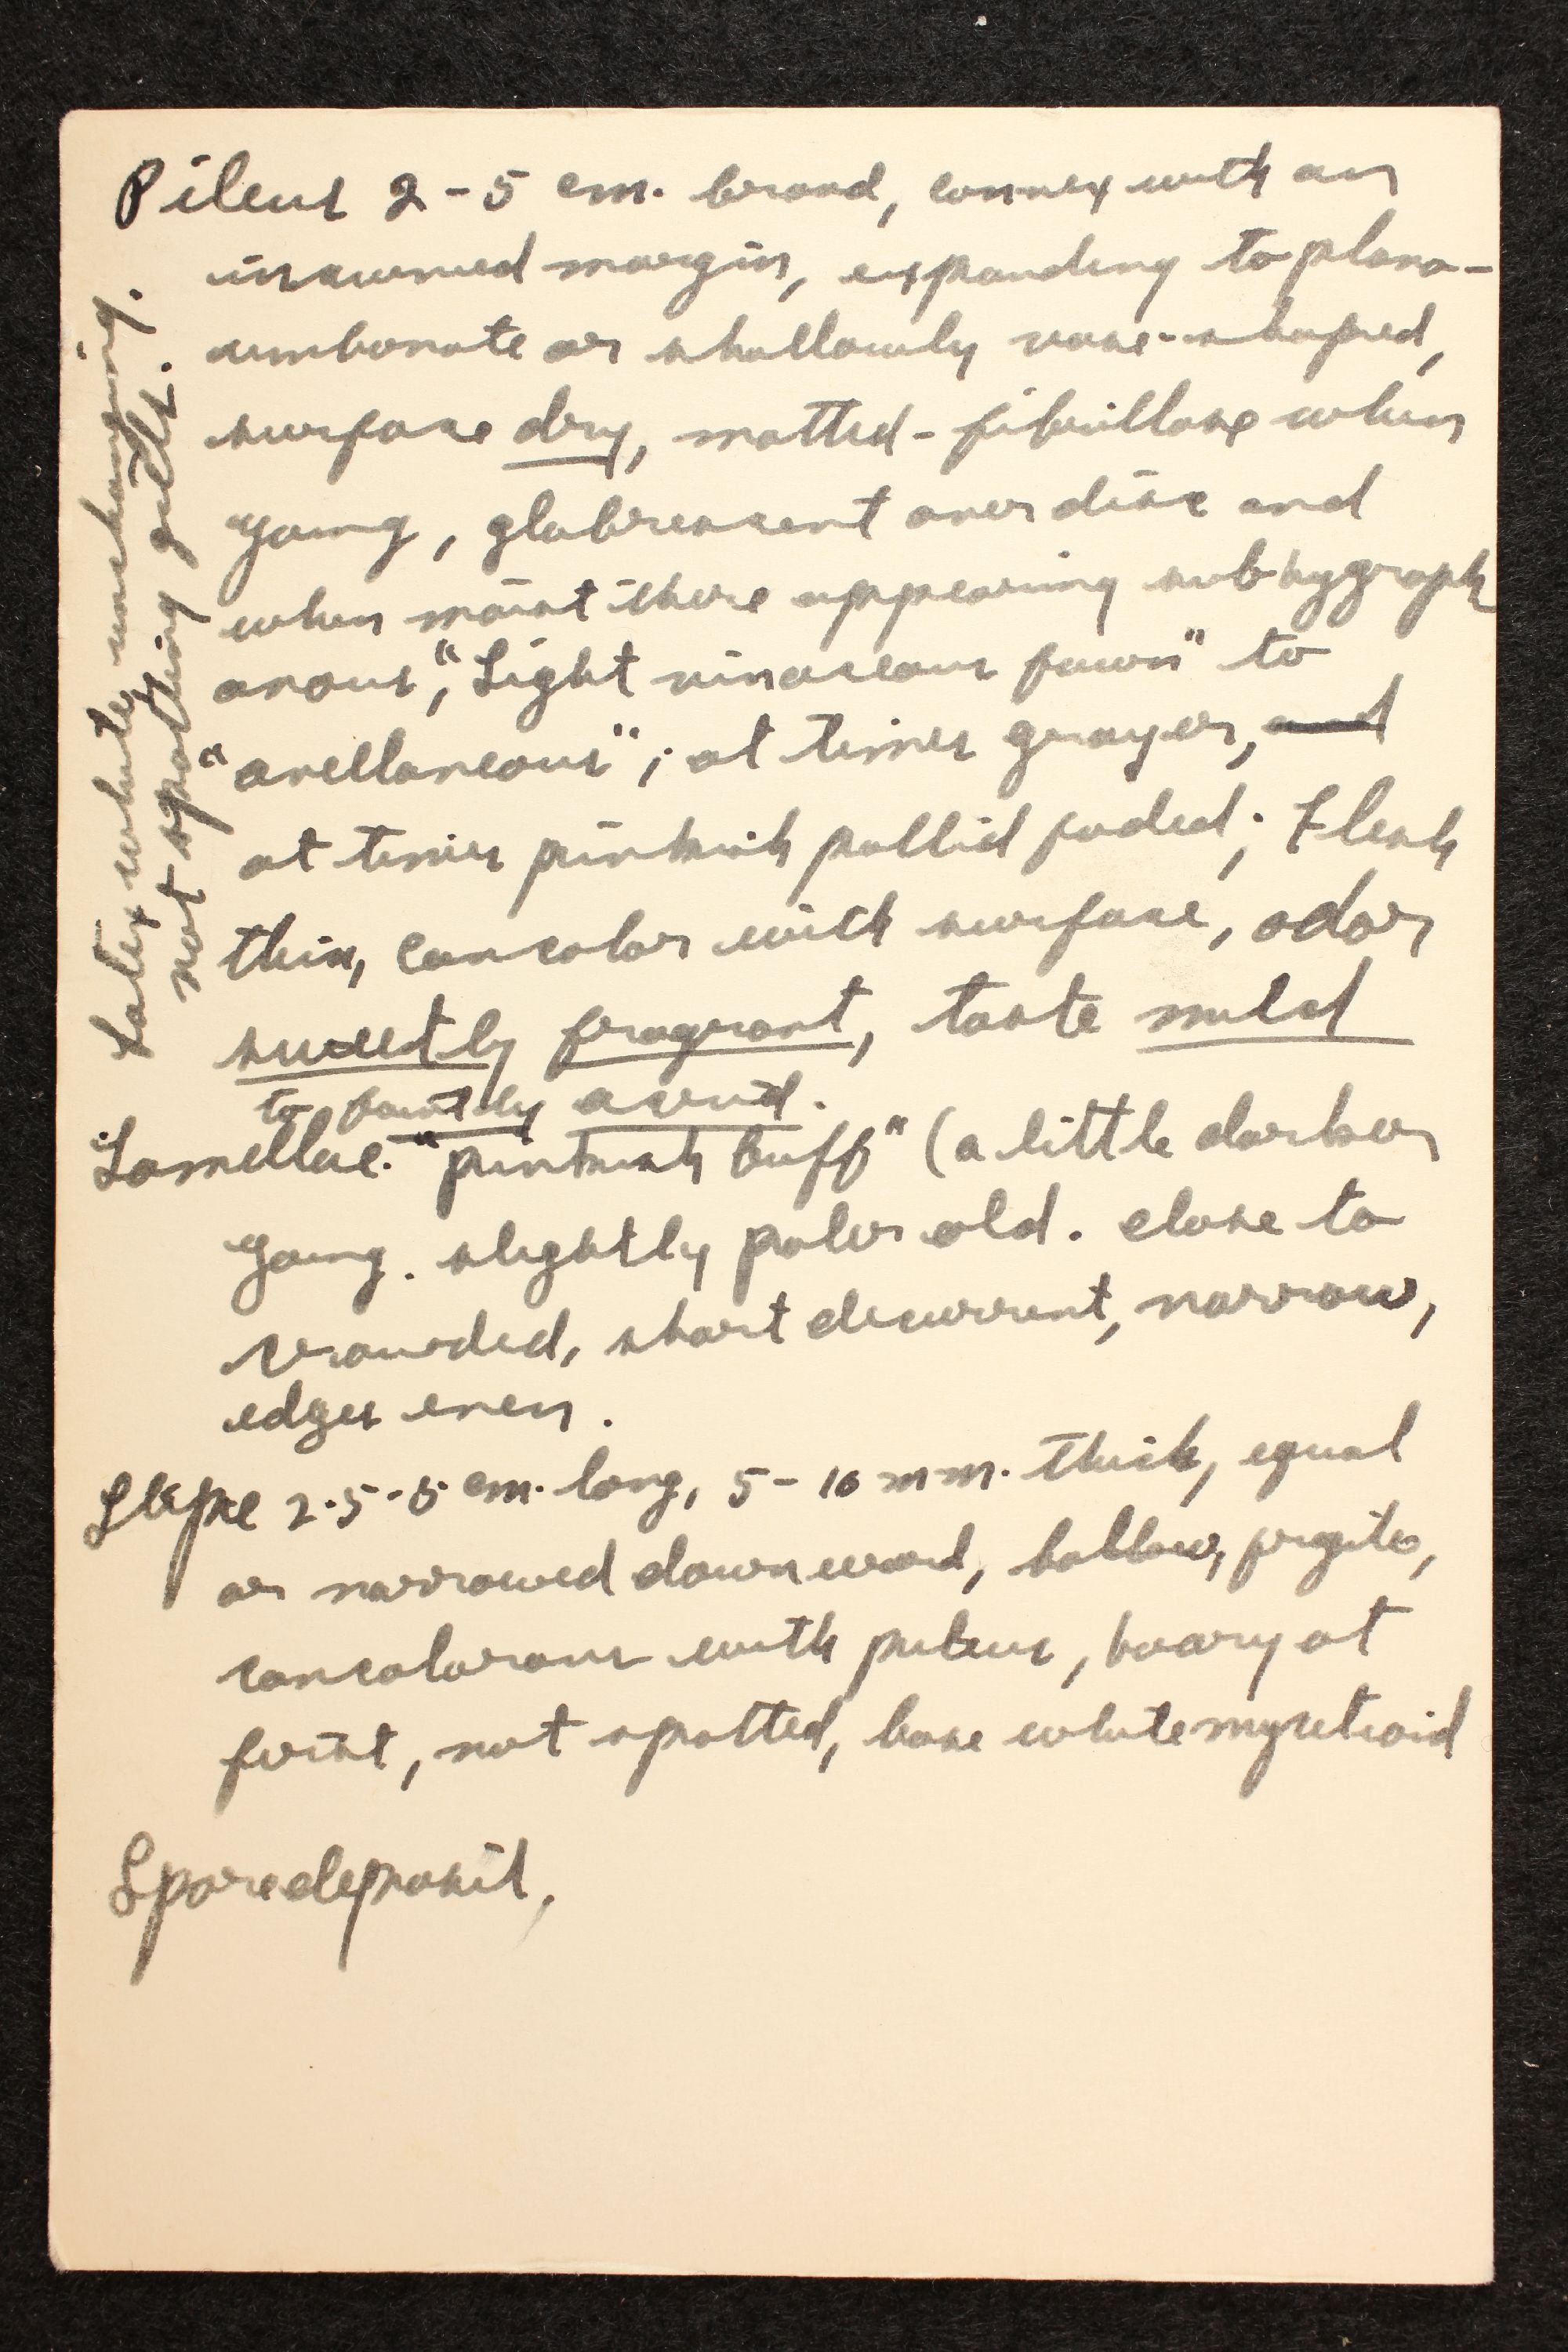 Pileus 2-5 cm. broad, convex with an
incurved margin, expanding to plano-
umbonate or shallowly vase-shaped,
surface dry, matted-fibrillose when
young, glabrescent over disc and
when moist there appearing subhygroph
anous, "Light vinaceous fawn" to
"avellaneous"; at times grayer, and
at times pinkish pallid faded; Flesh
thin, concolor with surface, odor
sweetly fragrant, taste mild
to faintly acrid.
Lamellae. "pinkish buff" (a little darker
young. slightly paler old. close to
crowded, short decurrent, narrow,
edges even.
Stipe 2.5-5 cm. long, 5-10 mm. thick, equal
or narrowed downward, hollow, fragile,
concolorous with pileus, hoary at
first, not spotted, base white mycetioid
Spore deposit,
Latex white, unchanging.
not spotting gills.